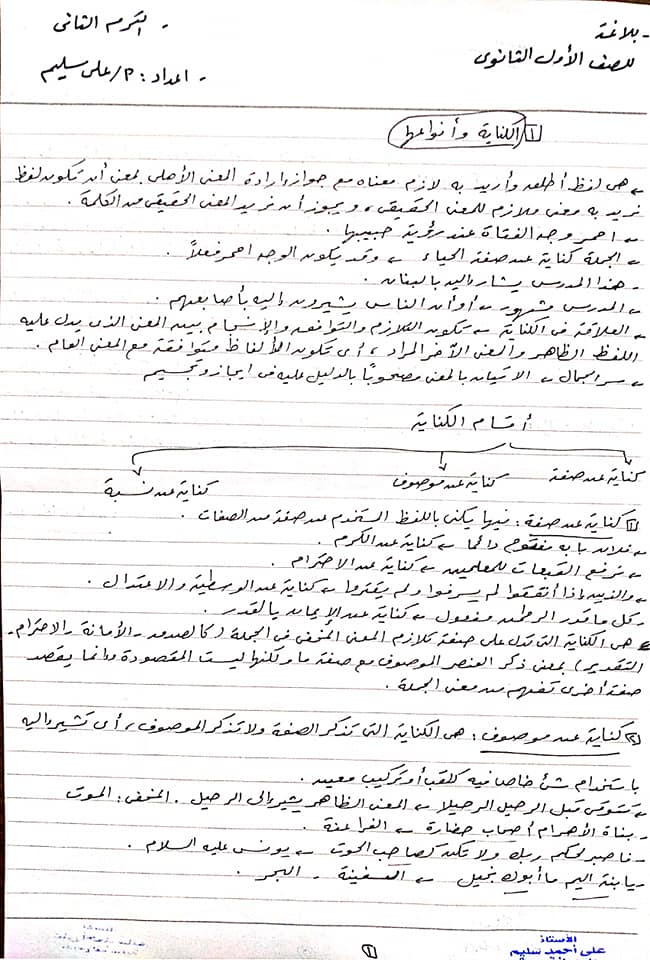 - بلاغة
- الترم الثاني
للصف الأول الثانوى
- اعداد: م/على سليم
١ الكناية وأنواعها
← هى لفظ أطلق وأريد به لازم معناه مع جواز إرادة المعنى الأصلى بمعنى أن تكون لفظ
نريد به معنى ملازم للمعنى الحقيقى، ويجوز أن نريد المعنى الحقيقى من الكلمة.
← احمر وجه الفتاة عند رؤية حبيبها.
← الجملة كناية عن صفة الحياء ← وقد يكون الوجه احمر فعلاً.
- هذا المدرس يشار إليه بالبنان.
← المدرس مشهور ← أو أن الناس يشيرون إليه بأصابعهم.
- العلاقة فى الكناية ← تكون التلازم والتوافق والإنسجام بين المعنى الذى يدل عليه
اللفظ الظاهر والمعنى الآخر المراد، أى تكون الألفاظ متوافقة مع المعنى العام.
← سر الجمال ← الاتيان بالمعنى مصحوبًا بالدليل عليه فى ايجاز وتجسيم
أقسام الكناية
كناية عن صفة كناية عن موصوف كناية عن نسبة
١ كناية عن صفة: فيها يكنى باللفظ المستخدم عن صفة من الصفات.
← فلان بابه مفتوح دائما ← كناية عن الكرم.
← نرفع القبعات للمعلمين ← كناية عن الاحترام.
← والذين إذا أنفقوا لم يسرفوا ولم يقتروا ← كناية عن الوسطية والاعتدال.
- كل ما قدر الرحمن مفعول ← كناية عن الإيمان بالقدر.
← هى الكناية التى تدل على صفة تلازم المعنى المخفى فى الجملة (كالصدق - الأمانة - الاحترام -
التقدير) بمعنى ذكر العنصر الموصوف مع صفة ما ولكنها ليست المقصودة وإنما يقصد
صفة أخرى تفهم من معنى الجملة.
٢ كناية عن موصوف: هى الكناية التى تذكر الصفة ولا تذكر الموصوف، أى تشير إليه
باستخدام شئ خاص فيه كلقب أو تركيب معين.
← تتوقى قبل الرحيل الرحيلا ← المعنى الظاهر يشير إلى الرحيل. المخفى: الموت
- بناة الأهرام أصحاب حضارة ← الفراعنة.
- فاصبر لحكم ربك ولا تكن كصاحب الحوت ← يونس عليه السلام.
- يا ابنة اليم ما أبوك بخيل ← السفينة - البحر.
١
الأستاذ
على أحمد سليم